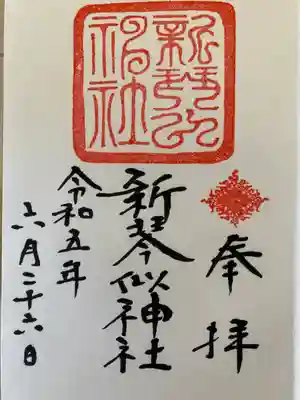 新琴似
神社
奉拝
新琴似神社
令和五年
六月二十六日